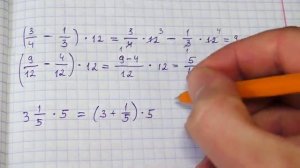 (3/4 − 1/3) · 12 = 3/4 · 12³ − 1/3 · 12⁴ = 9
(9/12 − 4/12) · 12 = (9−4)/12 · 12 = 5/
3 1/5 · 5 = (3 + 1/5) · 5